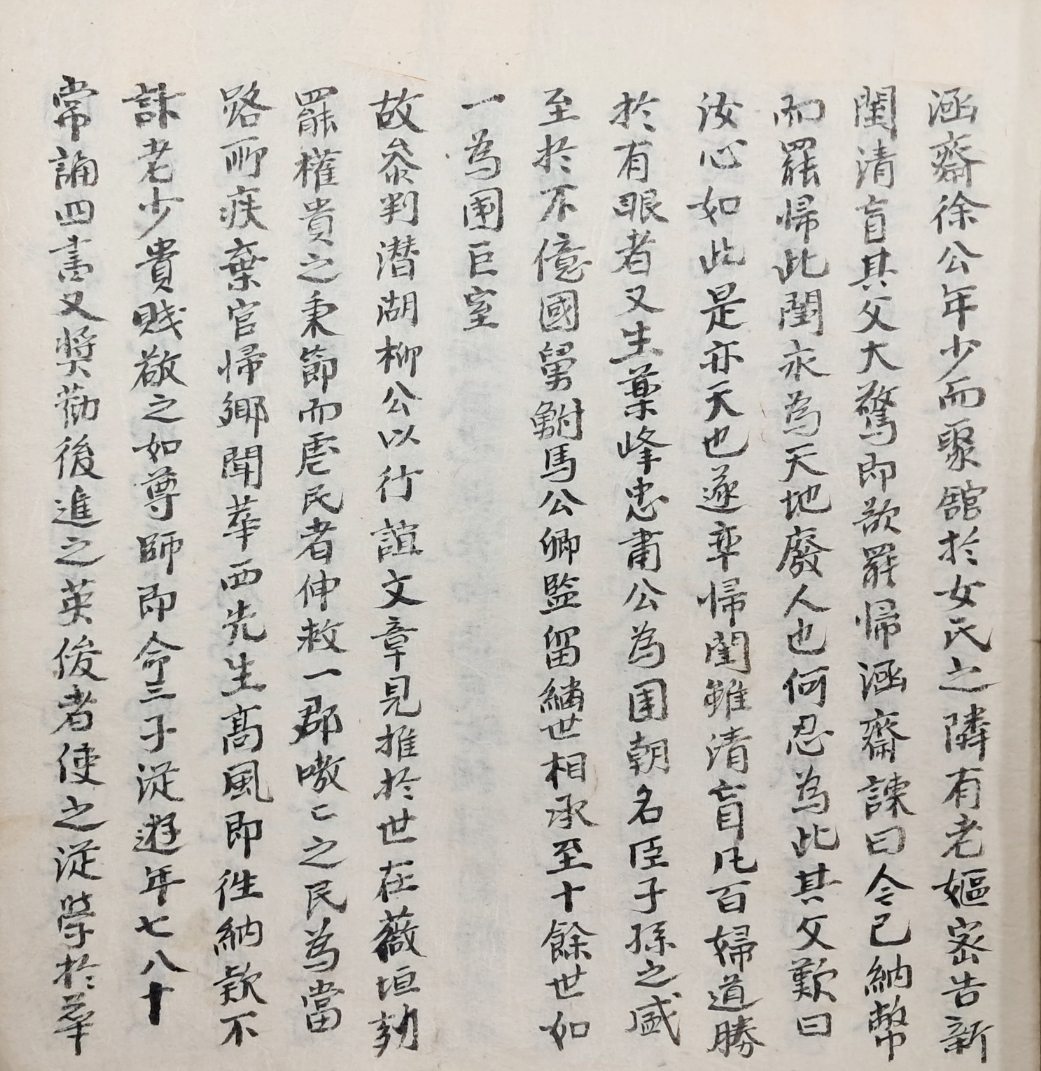 涵齋徐公年少而聚舘於女氏之隣有老嫗密告新
閨清盲其父大驚即欲罷歸涵齋諫曰今已納幣
而罷歸此閨永為天地廢人也何忍為此其父歎曰
汝心如此是亦天也遂率歸閨雖清盲凡百婦道勝
於有眼者又生藥峰忠肅公為國朝名臣子孫之盛
至於不億國舅駙馬公卿監留繡世相承至十餘世如
一為国巨室
故叅判潜湖柳公以行誼文章見推於世在薇垣劾
罷權貴之秉節而虐民者伸救一郡嗷〻之民為當
路所疾棄官帰鄉聞華西先生高風即徃納欵不
計老少貴賤敬之如尊師即命三子從遊年七八十
常誦四書又奬勸後進之英俊者使之從學於華